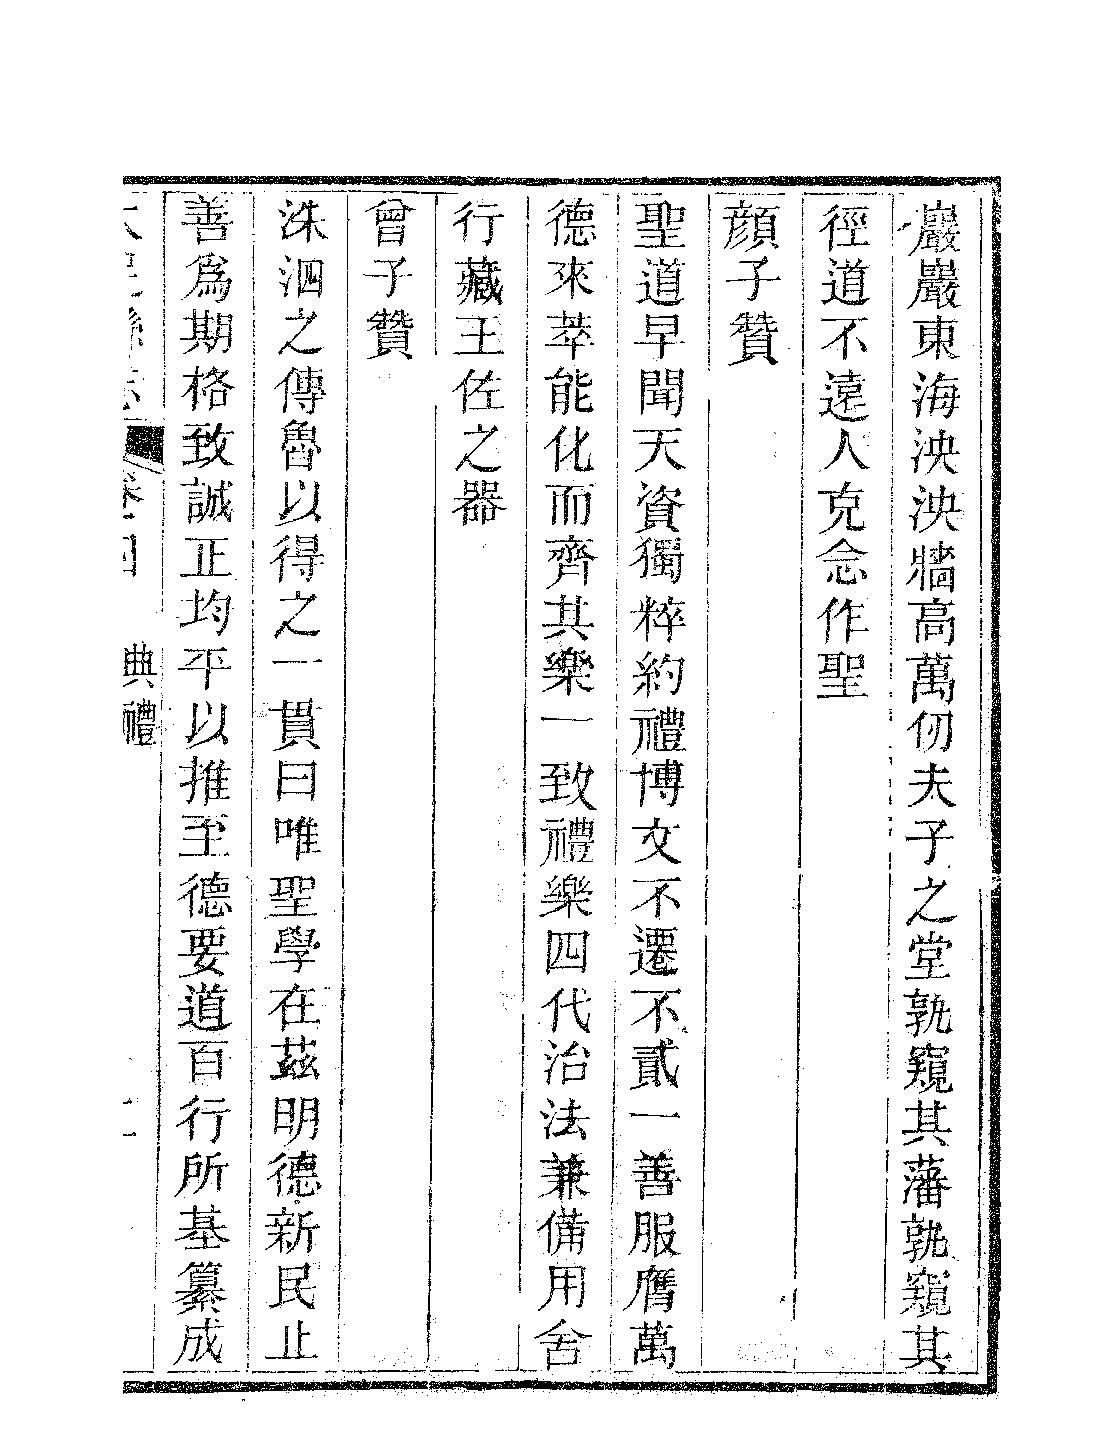 巖巖東海泱泱牆高萬仞夫子之堂孰窺其藩孰窺其
徑道不遠人克念作聖
顔子贊
聖道早聞天資獨粹約禮博文不遷不貳一善服膺萬
德來萃能化而齊其樂一致禮樂四代治法兼備用舍
行藏王佐之器
曾子贊
洙泗之傳魯以得之一貫曰唯聖學在茲明德新民止
善爲期格致誠正均平以推至德要道百行所基纂成
卷四 典禮